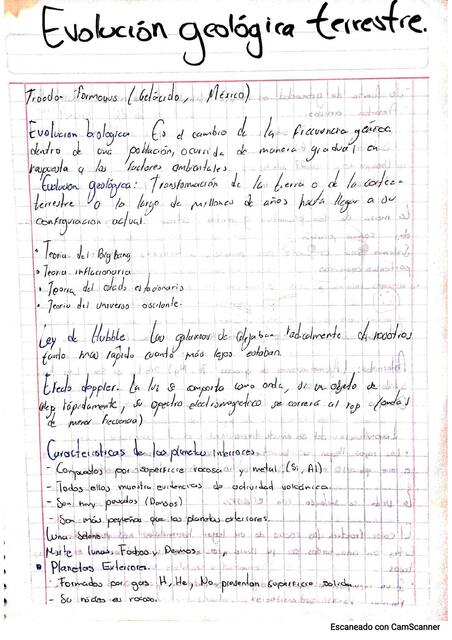 Evolución geológica terrestre.
formosus ( , México)
Evolución biológica Es el cambio de la frecuencia génica
dentro de una población, ocurrida de manera gradual en
respuesta a los factores ambientales
Evolución geológica: Transformación de la tierra o de la corteza
terrestre a lo largo de millones de años hasta llegar a su
configuración actual.
• Teoria del Big bang
• Teoria inflacionaria
• Teoria del estado estacionario
• Teoria del universo oscilante.
Ley de Hubble Las galaxias se alejaban radicalmente de nosotros
tanto mas rapido cuanto más lejos estaban.
Efecto doppler. La luz se comporta como onda, si un objeto se
aleja rápidamente, su espectro electromagnetico se correrá al rojo (ondas
de menor frecuencia)
Caracteristicas de los planetas Interiores
- Compuestos por superficie rocosa y metal (Si, Al)
- Todos ellos muestra evidencias de actividad volcánica
- Son muy pesados (Densos)
- Son más pequeños que los planetas exteriores.
Luna
Marte lunas, Fobos y
Planetas Exteriores.
- Formados por gas H, He, No presentan superficie solida
- Su núcleo es rocoso.
Escaneado con CamScanner